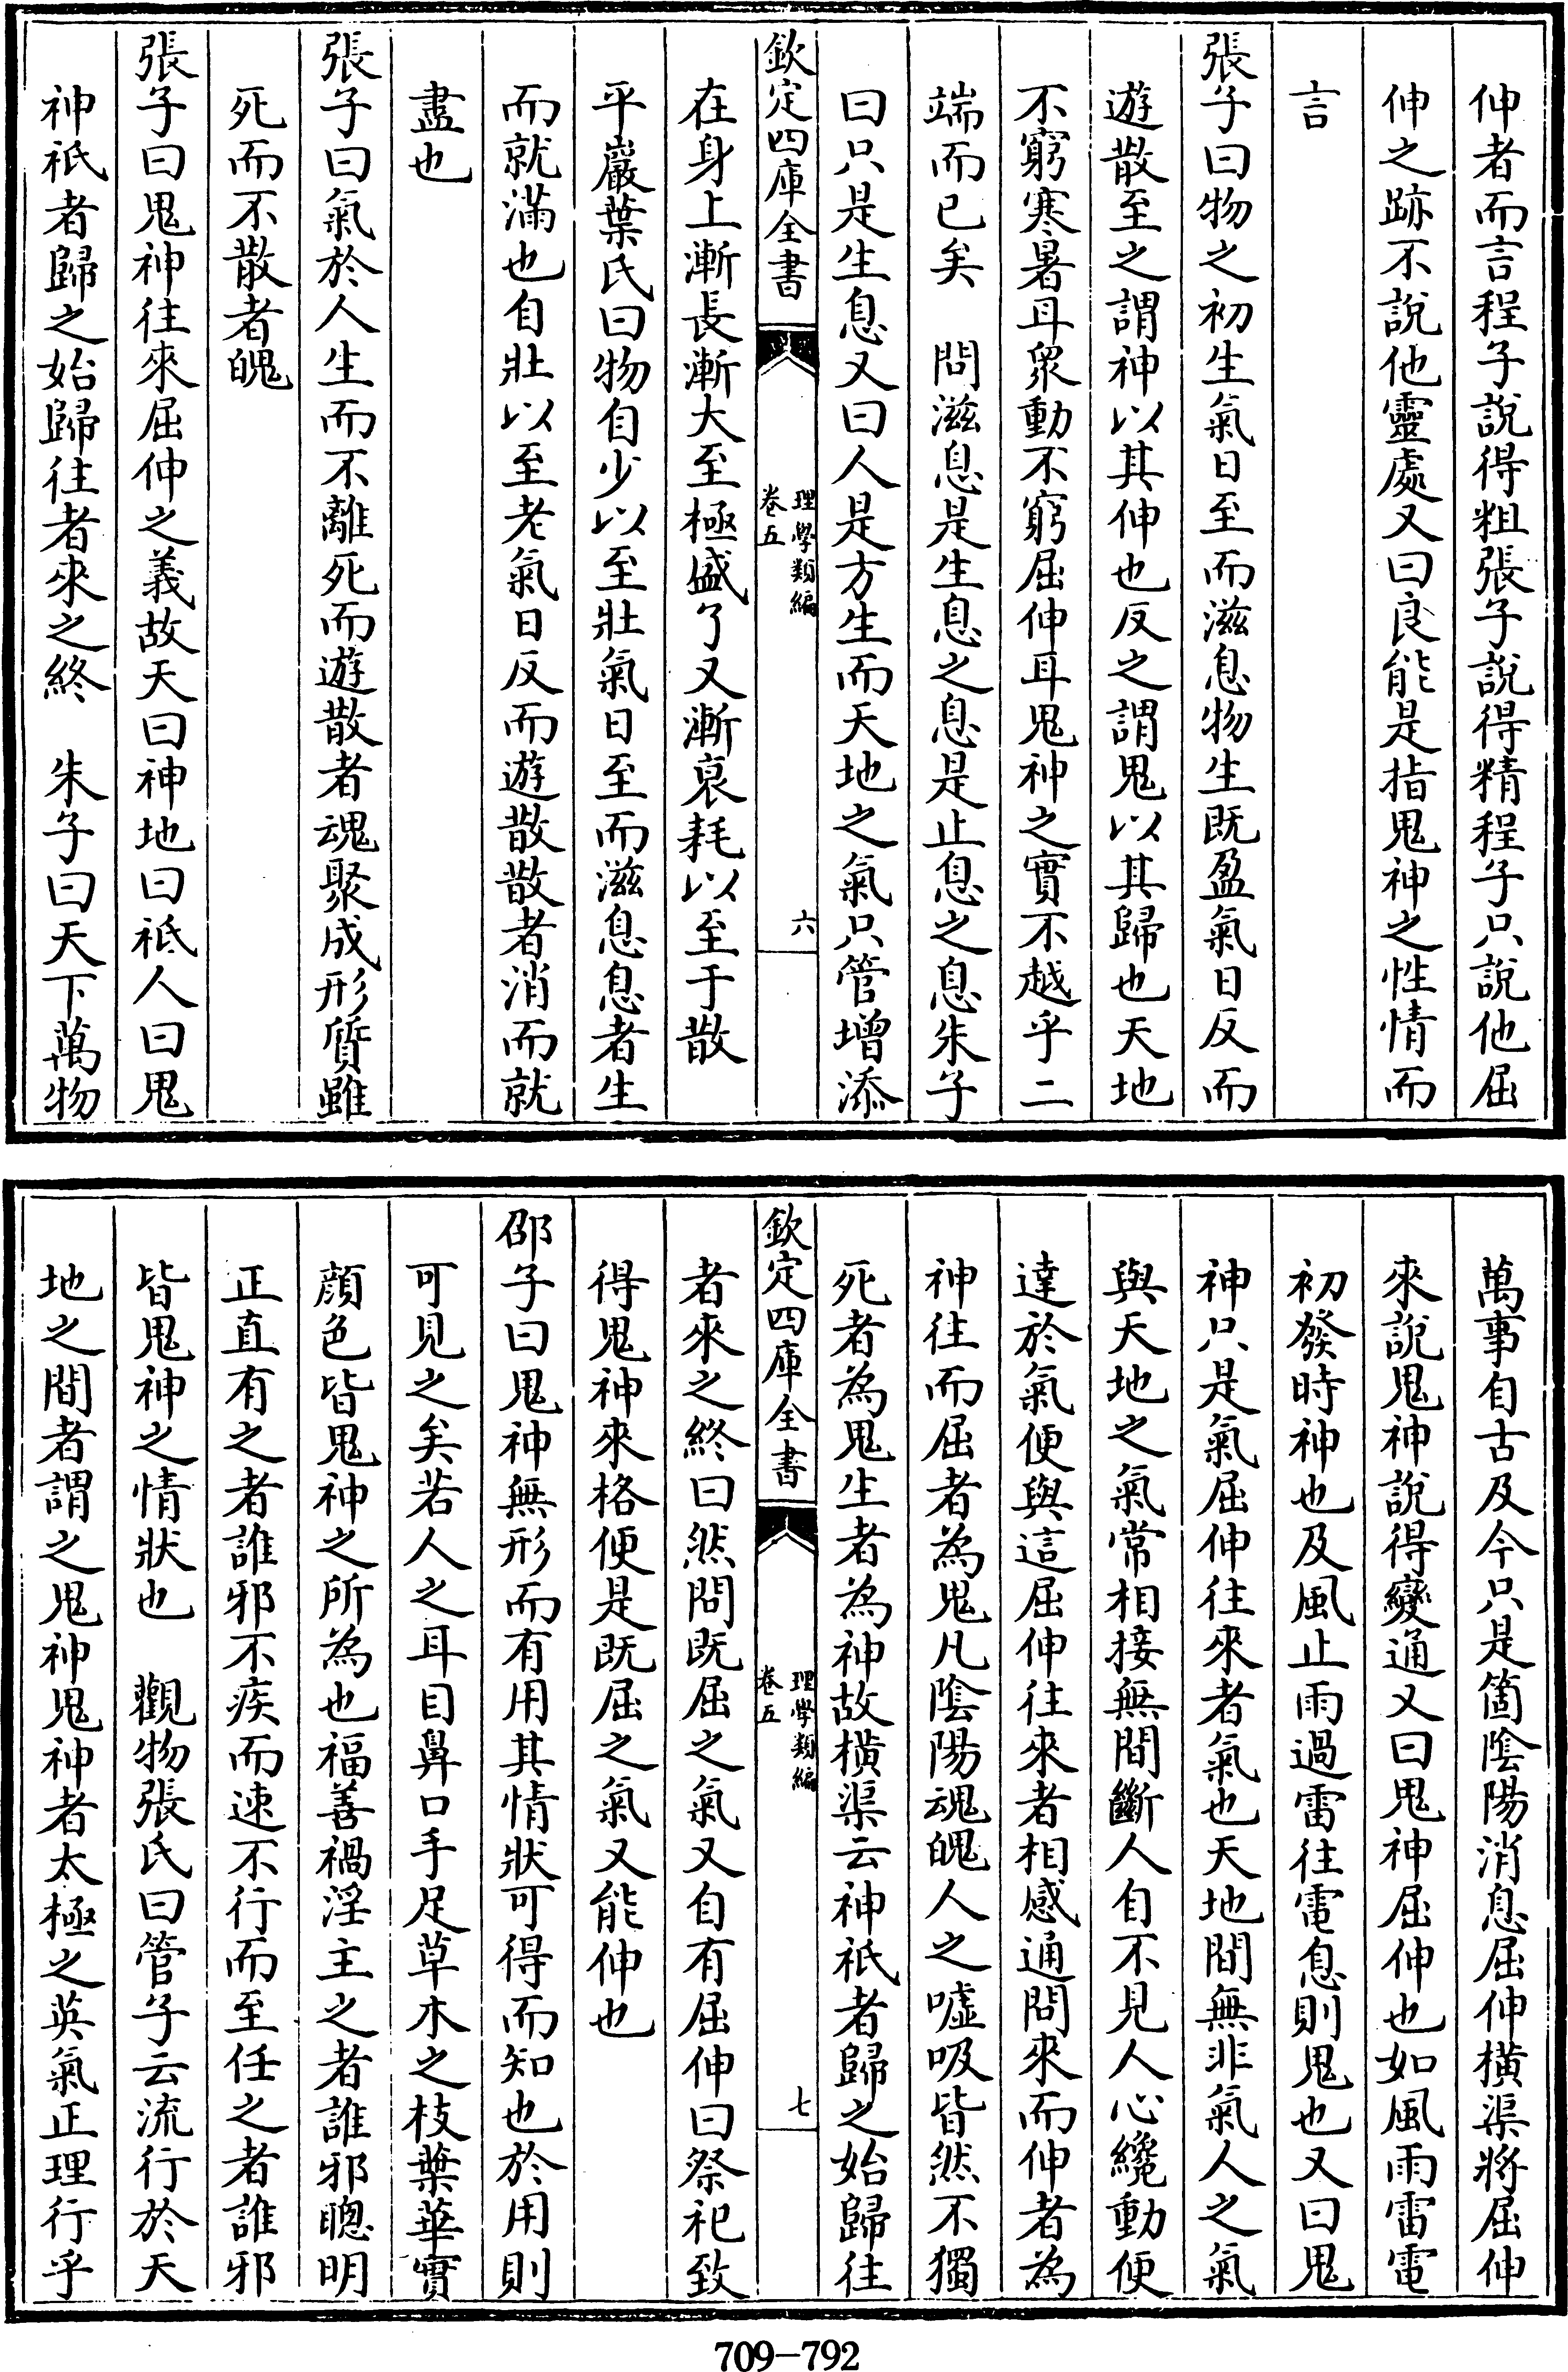 伸者而言程子說得粗張子說得精程子只說他屈
伸之跡不說他靈處又曰良能是指鬼神之性情而
言
張子曰物之初生氣日至而滋息物生既盈氣日反而
遊散至之謂神以其伸也反之謂鬼以其歸也天地
不窮寒暑耳衆動不窮屈伸耳鬼神之實不越乎二
端而已矣　問滋息是生息之息是止息之息朱子
曰只是生息又曰人是方生而天地之氣只管增添
欽定四庫全書
理學類編
卷五
六
在身上漸長漸大至極盛了又漸衰耗以至于散
平巖葉氏曰物自少以至壯氣日至而滋息息者生
而就滿也自壯以至老氣日反而遊散散者消而就
盡也
張子曰氣於人生而不離死而遊散者魂聚成形質雖
死而不散者魄
張子曰鬼神往來屈伸之義故天曰神地曰祇人曰鬼
神祇者歸之始歸往者來之終　朱子曰天下萬物
萬事自古及今只是箇陰陽消息屈伸橫渠將屈伸
來說鬼神說得變通又曰鬼神屈伸也如風雨雷電
初發時神也及風止雨過雷往電息則鬼也又曰鬼
神只是氣屈伸往來者氣也天地間無非氣人之氣
與天地之氣常相接無間斷人自不見人心纔動便
達於氣便與這屈伸往來者相感通問來而伸者為
神往而屈者為鬼凡陰陽魂魄人之噓吸皆然不獨
死者為鬼生者為神故橫渠云神祇者歸之始歸往
欽定四庫全書
理學類編
卷五
七
者來之終曰然問既屈之氣又自有屈伸曰祭祀致
得鬼神來格便是既屈之氣又能伸也
邵子曰鬼神無形而有用其情狀可得而知也於用則
可見之矣若人之耳目鼻口手足草木之枝葉華實
顏色皆鬼神之所為也福善禍淫主之者誰邪聰明
正直有之者誰邪不疾而速不行而至任之者誰邪
皆鬼神之情狀也　觀物張氏曰管子云流行於天
地之間者謂之鬼神鬼神者太極之英氣正理行乎
709-792